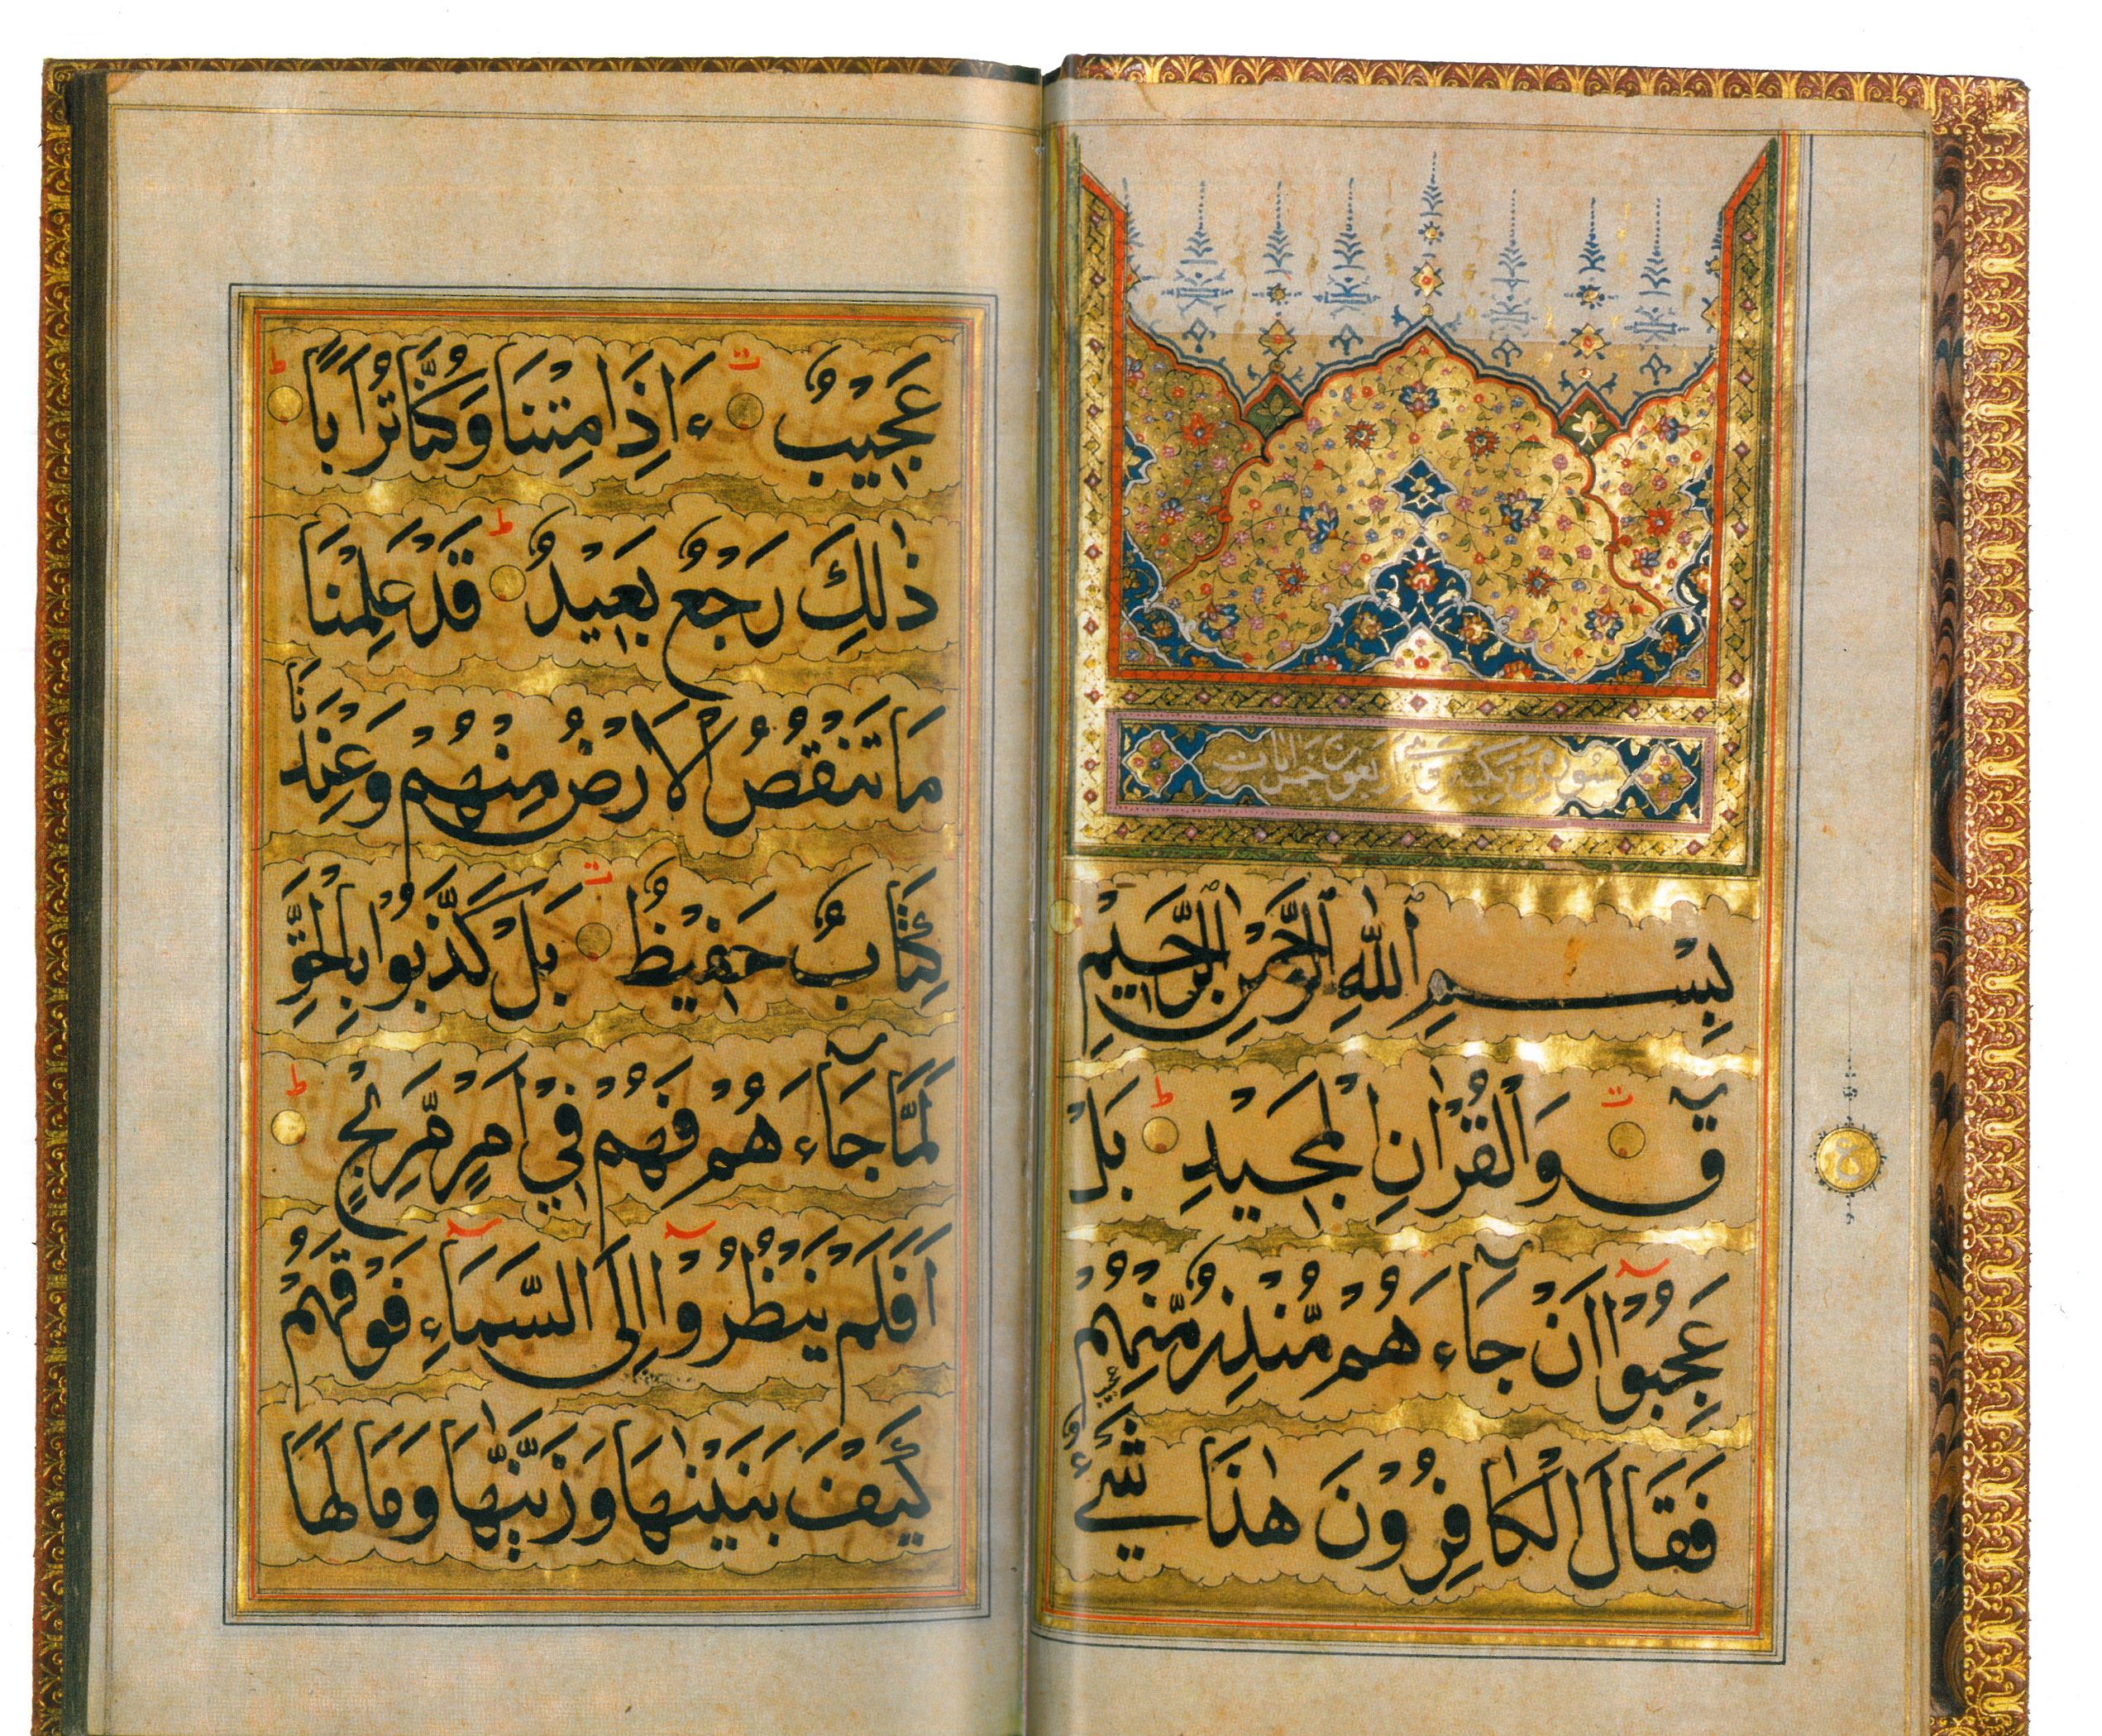 سورة ق مكية وهي اربعون خمس ايات
بِسْمِ اللّٰهِ الرَّحْمٰنِ الرَّحِيْمِ
قٓ ت وَالْقُرْاٰنِ الْمَجِيْدِ ط بَلْ
عَجِبُوْا اَنْ جَآءَهُمْ مُّنْذِرٌ مِّنْهُمْ
فَقَالَ الْكَافِرُوْنَ هٰذَا شَيْءٌ
عَجِيْبٌ ت ءَاِذَا مِتْنَا وَكُنَّا تُرَابًا ط
ذٰلِكَ رَجْعٌ بَعِيْدٌ ط قَدْ عَلِمْنَا
مَا تَنْقُصُ الْاَرْضُ مِنْهُمْ وَعِنْدَنَا
كِتَابٌ حَفِيْظٌ ت بَلْ كَذَّبُوْا بِالْحَقِّ
لَمَّا جَآءَهُمْ فَهُمْ فِيْ اَمْرٍ مَّرِيْجٍ ط
اَفَلَمْ يَنْظُرُوْا اِلَى السَّمَاءِ فَوْقَهُمْ
كَيْفَ بَنَيْنٰهَا وَزَيَّنّٰهَا وَمَا لَهَا